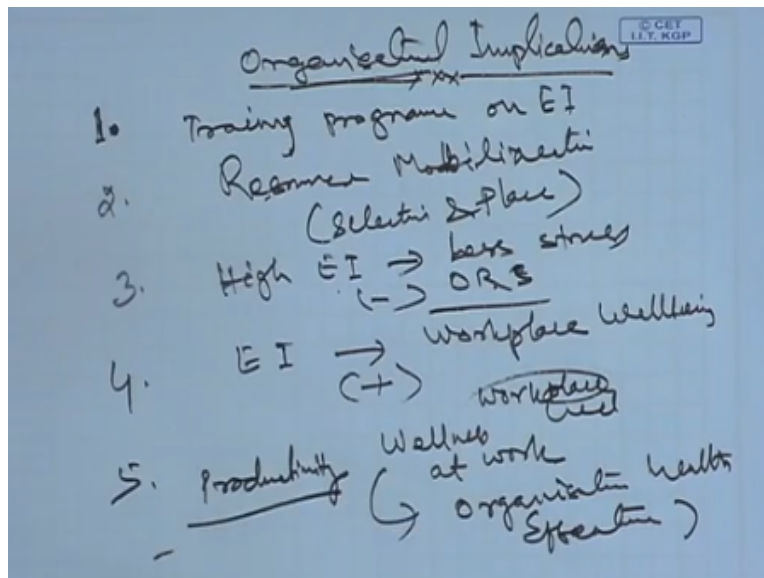 © CET
I.I.T. KGP
Organisational Implications
1. Training programe on EI
2. Resource Mobilisation
(Selection & Place)
3. High EI → Less stress
(-) ORS
4. EI → Workplace Wellbeing
(+) workplace
5. Productivity Wellness
at work
Organisation health
Effective)